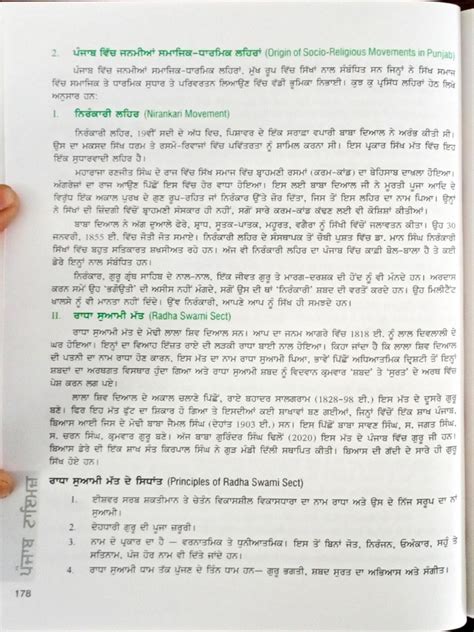 2. ਪੰਜਾਬ ਵਿੱਚ ਜਨਮੀਆਂ ਸਮਾਜਿਕ-ਧਾਰਮਿਕ ਲਹਿਰਾਂ (Origin of Socio-Religious Movements in Punjab)
ਪੰਜਾਬ ਵਿੱਚ ਜਨਮੀਆਂ ਸਮਾਜਿਕ-ਧਾਰਮਿਕ ਲਹਿਰਾਂ, ਮੁੱਖ ਰੂਪ ਵਿੱਚ ਸਿੱਖਾਂ ਨਾਲ ਸੰਬੰਧਿਤ ਸਨ ਜਿਨ੍ਹਾਂ ਨੇ ਸਿੱਖ ਸਮਾਜ
ਵਿੱਚ ਸਮਾਜਿਕ ਤੇ ਧਾਰਮਿਕ ਸੁਧਾਰ ਤੇ ਪਰਿਵਰਤਨ ਲਿਆਉਣ ਵਿੱਚ ਵੱਡੀ ਭੂਮਿਕਾ ਨਿਭਾਈ। ਕੁਝ ਕੁ ਪ੍ਰਸਿੱਧ ਲਹਿਰਾਂ ਹੇਠ ਲਿਖੇ
ਅਨੁਸਾਰ ਹਨ:
I. ਨਿਰੰਕਾਰੀ ਲਹਿਰ (Nirankari Movement)
ਨਿਰੰਕਾਰੀ ਲਹਿਰ, 19ਵੀਂ ਸਦੀ ਦੇ ਅੱਧ ਵਿਚ, ਪਿਸ਼ਾਵਰ ਦੇ ਇੱਕ ਸਰਾਫ਼ਾ ਵਪਾਰੀ ਬਾਬਾ ਦਿਆਲ ਨੇ ਅਰੰਭ ਕੀਤੀ ਸੀ।
ਉਸ ਦਾ ਮਕਸਦ ਸਿੱਖ ਧਰਮ ਤੇ ਰਸਮੋ-ਰਿਵਾਜਾਂ ਵਿੱਚ ਪਵਿੱਤਰਤਾ ਨੂੰ ਸ਼ਾਮਿਲ ਕਰਨਾ ਸੀ। ਇਸ ਪ੍ਰਕਾਰ ਸਿੱਖ ਮੱਤ ਵਿੱਚ ਇਹ
ਇੱਕ ਸੁਧਾਰਵਾਦੀ ਲਹਿਰ ਹੈ।
ਮਹਾਰਾਜਾ ਰਣਜੀਤ ਸਿੰਘ ਦੇ ਰਾਜ ਵਿੱਚ ਸਿੱਖ ਸਮਾਜ ਵਿੱਚ ਬ੍ਰਾਹਮਣੀ ਰਸਮਾਂ (ਕਰਮ-ਕਾਂਡ) ਦਾ ਬੇਹਿਸਾਬ ਦਾਖਲਾ ਹੋਇਆ।
ਅੰਗਰੇਜ਼ਾਂ ਦਾ ਰਾਜ ਆਉਣ ਪਿੱਛੋਂ ਇਸ ਵਿੱਚ ਹੋਰ ਵਾਧਾ ਹੋਇਆ। ਇਸ ਲਈ ਬਾਬਾ ਦਿਆਲ ਜੀ ਨੇ ਮੂਰਤੀ ਪੂਜਾ ਆਦਿ ਦੇ
ਵਿਰੁੱਧ ਇੱਕ ਅਕਾਲ ਪੁਰਖ ਦੇ ਗੁਣ ਰੂਪ-ਰਹਿਤ ਜਾਂ ਨਿਰੰਕਾਰ ਰੂਪ ਉੱਤੇ ਜ਼ੋਰ ਦਿੱਤਾ, ਜਿਸ ਤੋਂ ਇਸ ਲਹਿਰ ਦਾ ਨਾਮ ਪਿਆ। ਉਨ੍ਹਾਂ
ਨੇ ਸਿੱਖਾਂ ਦੀ ਜ਼ਿੰਦਗੀ ਵਿੱਚੋਂ ਬ੍ਰਾਹਮਣੀ ਸੰਸਕਾਰ ਹੀ ਨਹੀਂ, ਸਗੋਂ ਸਾਰੇ ਕਰਮ-ਕਾਂਡ ਕੱਢਣ ਲਈ ਵੀ ਕੋਸ਼ਿਸ਼ਾਂ ਕੀਤੀਆਂ।
ਬਾਬਾ ਦਿਆਲ ਨੇ ਅੰਗ ਦੁਆਲੇ ਫੇਰੇ, ਸ਼੍ਰਾਧ, ਸੂਤਕ-ਪਾਤਕ, ਮਹੂਰਤ, ਵਗੈਰਾ ਨੂੰ ਸਿੱਖੀ ਤੋਂ ਉਲਟ ਦੱਸਿਆ। ਉਹ 30
ਜਨਵਰੀ, 1855 ਈ. ਵਿੱਚ ਜੋਤੀ ਜੋਤ ਸਮਾਏ। ਨਿਰੰਕਾਰੀ ਲਹਿਰ ਦੇ ਸੰਸਥਾਪਕ ਤੋਂ ਚੌਥੀ ਪੁਸ਼ਤ ਵਿੱਚ ਡਾ. ਮਾਨ ਸਿੰਘ ਨਿਰੰਕਾਰੀ
ਸਿੱਖਾਂ ਵਿੱਚ ਬਹੁਤ ਸਤਿਕਾਰਤ ਸ਼ਖਸੀਅਤ ਰਹੇ ਹਨ। ਅੱਜ ਵੀ ਨਿਰੰਕਾਰੀ ਲਹਿਰ ਦਾ ਪੰਜਾਬ ਵਿੱਚ ਕਾਫ਼ੀ ਬੋਲ-ਬਾਲਾ ਹੈ ਤੇ ਕਈ
ਡੇਰੇ ਇਨ੍ਹਾਂ ਨਾਲ ਸੰਬੰਧਿਤ ਹਨ।
ਨਿਰੰਕਾਰੀ, ਗੁਰੂ ਗ੍ਰੰਥ ਸਾਹਿਬ ਦੇ ਨਾਲ-ਨਾਲ, ਇੱਕ ਜੀਵਤ ਗੁਰੂ ਤੇ ਮਾਰਗ-ਦਰਸ਼ਕ ਦੀ ਹੋਂਦ ਨੂੰ ਵੀ ਮੰਨਦੇ ਹਨ। ਅਰਦਾਸ
ਕਰਨ ਸਮੇਂ ਉਹ 'ਭਗੌਉਤੀ' ਦੀ ਅਸੀਸ ਨਹੀਂ ਮੰਗਦੇ, ਸਗੋਂ ਉਸ ਦੀ ਥਾਂ 'ਨਿਰੰਕਾਰੀ' ਸ਼ਬਦ ਦੀ ਵਰਤੋਂ ਕਰਦੇ ਹਨ। ਉਹ ਮਿਲੀਟੈਂਟ
ਖ਼ਾਲਸੇ ਨੂੰ ਵੀ ਮਾਨਤਾ ਨਹੀਂ ਦਿੰਦੇ। ਉਂਝ ਨਿਰੰਕਾਰੀ, ਆਪਣੇ ਆਪ ਨੂੰ ਸਿੱਖ ਹੀ ਸਮਝਦੇ ਹਨ।
II. ਰਾਧਾ ਸੁਆਮੀ ਮੱਤ (Radha Swami Sect)
ਰਾਧਾ ਸੁਆਮੀ ਮੱਤ ਦੇ ਮੋਢੀ ਲਾਲਾ ਸ਼ਿਵ ਦਿਆਲ ਸਨ। ਆਪ ਦਾ ਜਨਮ ਆਗਰੇ ਵਿੱਚ 1818 ਈ. ਨੂੰ ਲਾਲ ਦਿਲਵਾਲੀ ਦੇ
ਘਰ ਹੋਇਆ। ਇਨ੍ਹਾਂ ਦਾ ਵਿਆਹ ਇੱਜ਼ਤ ਰਾਏ ਦੀ ਲੜਕੀ ਰਾਧਾ ਬਾਈ ਨਾਲ ਹੋਇਆ। ਕਿਹਾ ਜਾਂਦਾ ਹੈ ਕਿ ਲਾਲਾ ਸ਼ਿਵ ਦਿਆਲ
ਦੀ ਪਤਨੀ ਦਾ ਨਾਮ ਰਾਧਾ ਹੋਣ ਕਾਰਨ, ਇਸ ਮੱਤ ਦਾ ਨਾਮ ਰਾਧਾ ਸੁਆਮੀ ਪਿਆ, ਭਾਵੇਂ ਪਿੱਛੋਂ ਅਧਿਆਤਮਿਕ ਦ੍ਰਿਸ਼ਟੀ ਤੋਂ ਇਨ੍ਹਾਂ
ਦੋ ਸ਼ਬਦਾਂ ਭਾਵ ਰਾਧਾ ਤੇ ਸੁਆਮੀ ਨੂੰ ਵਿਦਵਾਨ ਕ੍ਰਮਵਾਰ 'ਸ਼ਬਦ' ਤੇ 'ਸੁਰਤ' ਦੇ ਅਰਥ ਵਿੱਚ
ਪੇਸ਼ ਕਰਨ ਲਗ ਪਏ।
ਲਾਲਾ ਸ਼ਿਵ ਦਿਆਲ ਦੇ ਅਕਾਲ ਚਲਾਣੇ ਪਿੱਛੋਂ, ਰਾਏ ਬਹਾਦਰ ਸਾਲਗਰਾਮ (1828-98 ਈ.) ਇਸ ਮੱਤ ਦੇ ਦੂਸਰੇ ਗੁਰੂ
ਬਣੇ। ਫਿਰ ਇਹ ਮੱਤ ਫੁੱਟ ਦਾ ਸ਼ਿਕਾਰ ਹੋ ਗਿਆ ਤੇ ਇਸਦੀਆਂ ਕਈ ਸ਼ਾਖਾਵਾਂ ਬਣ ਗਈਆਂ, ਜਿਨ੍ਹਾਂ ਵਿੱਚੋਂ ਇੱਕ ਸ਼ਾਖ ਪੰਜਾਬ,
ਬਿਆਸ ਆਈ ਜਿਸ ਦੇ ਮੋਢੀ ਬਾਬਾ ਜੈਮਲ ਸਿੰਘ (ਦੇਹਾਂਤ 1903 ਈ.) ਸਨ। ਇਸ ਪਿੱਛੋਂ ਬਾਬਾ ਸਾਵਣ ਸਿੰਘ, ਸ. ਜਗਤ ਸਿੰਘ,
ਸ. ਚਰਨ ਸਿੰਘ, ਕ੍ਰਮਵਾਰ ਗੁਰੂ ਬਣੇ। ਅੱਜ ਬਾਬਾ ਗੁਰਿੰਦਰ ਸਿੰਘ ਢਿਲੋਂ (2020) ਇਸ ਮੱਤ ਦੇ ਪੰਜਾਬ ਵਿੱਚ ਗੁਰੂ ਜੀ ਹਨ।
ਬਿਆਸ ਡੇਰੇ ਤੋਂ ਟੁੱਟ ਕੇ ਇੱਕ ਸ਼ਾਖ ਸੰਤ ਕਿਰਪਾਲ ਸਿੰਘ ਨੇ ਗੁੜ ਮੰਡੀ ਦਿੱਲੀ ਸਥਾਪਿਤ ਕੀਤੀ। ਬਿਆਸ ਦੀ ਗੱਦੀ ਦੇ ਸਾਰੇ ਹੀ ਗੁਰੂ
ਸਿੱਖ ਹੋਏ ਹਨ।
ਰਾਧਾ ਸੁਆਮੀ ਮੱਤ ਦੇ ਸਿਧਾਂਤ (Principles of Radha Swami Sect)
1. ਈਸ਼ਵਰ ਸਰਬ ਸ਼ਕਤੀਮਾਨ ਤੇ ਚੇਤੰਨ ਵਿਕਾਸਸ਼ੀਲ ਵਿਕਾਸਧਾਰਾ ਦਾ ਨਾਮ ਰਾਧਾ ਅਤੇ ਉਸ ਦੇ ਨਿੱਜ ਸਰੂਪ ਦਾ ਨਾਂ
ਸੁਆਮੀ।
2. ਦੇਹਧਾਰੀ ਗੁਰੂ ਦੀ ਪੂਜਾ ਜ਼ਰੂਰੀ।
3. ਨਾਮ ਦੋ ਪ੍ਰਕਾਰ ਦਾ ਹੈ – ਵਰਨਾਤਮਿਕ ਤੇ ਧੁਨੀਆਤਮਿਕ। ਇਸ ਤੋਂ ਬਿਨਾਂ ਜੋਤ, ਨਿਰੰਜਨ, ਓਅੰਕਾਰ, ਸਹੁੰ ਤੇ
ਸਤਿਨਾਮ, ਪੰਜ ਹੋਰ ਨਾਮ ਵੀ ਦਿੱਤੇ ਜਾਂਦੇ ਹਨ।
4. ਰਾਧਾ ਸੁਆਮੀ ਧਾਮ ਤੱਕ ਪੁੱਜਣ ਦੇ ਤਿੰਨ ਧਾਮ ਹਨ— ਗੁਰੂ ਭਗਤੀ, ਸ਼ਬਦ ਸੁਰਤ ਦਾ ਅਭਿਆਸ ਅਤੇ ਸੰਗੀਤ।
ਪੰਜਾਬ ਟਾਇਮਜ਼
178